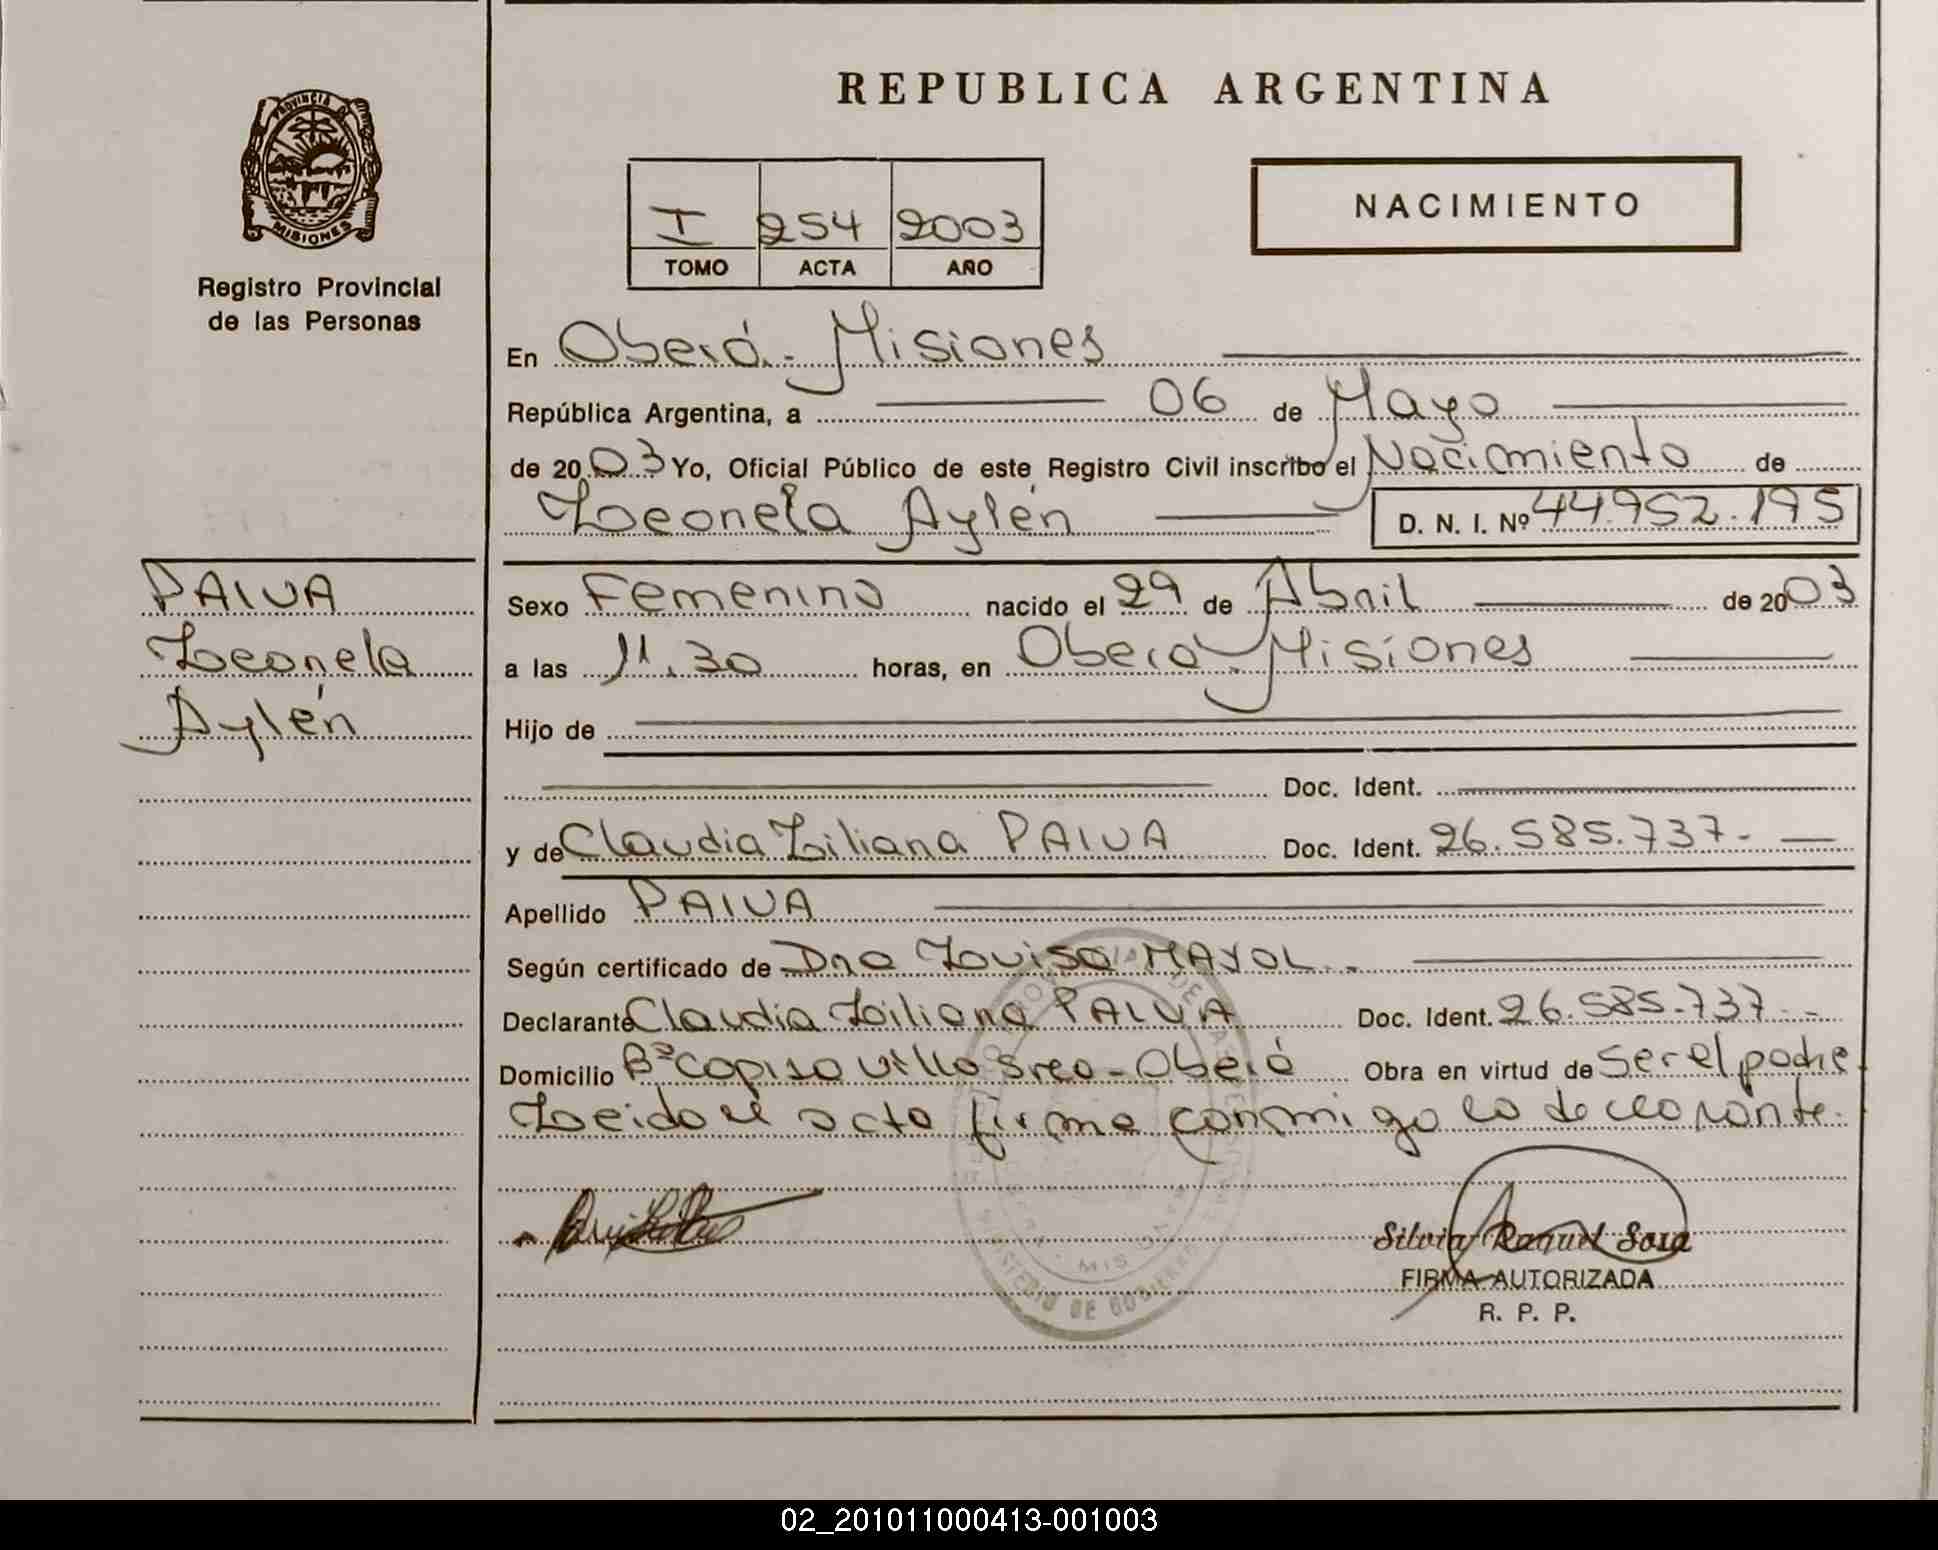 REPUBLICA ARGENTINA
PROVINCIA D MISIONES
Registro Provincial
de las Personas
I 254 2003
TOMO ACTA AÑO
NACIMIENTO
En Oberá - Misiones
República Argentina, a 06 de Mayo
de 2003 Yo, Oficial Público de este Registro Civil inscribo el Nacimiento de
Leonela Aylén D. N. I. Nº 44.952.195
PAIVA
Leonela
Aylén
Sexo Femenino nacido el 29 de Abril de 2003
a las 11.30 horas, en Oberá - Misiones
Hijo de
Doc. Ident.
y de Claudia Liliana PAIVA Doc. Ident. 26.585.737.-
Apellido PAIVA
Según certificado de Dra Luisa MAYOL.-
Declarante Claudia Liliana PAIVA Doc. Ident. 26.585.737.-
Domicilio Bº Copisa Villa Oberá Obra en virtud de Ser el padre
Leida el acta firma conmigo la declarante.
MINISTERIO DE GOBIERNO
Silvia Raquel Sosa
FIRMA AUTORIZADA
R. P. P.
02_201011000413-001003